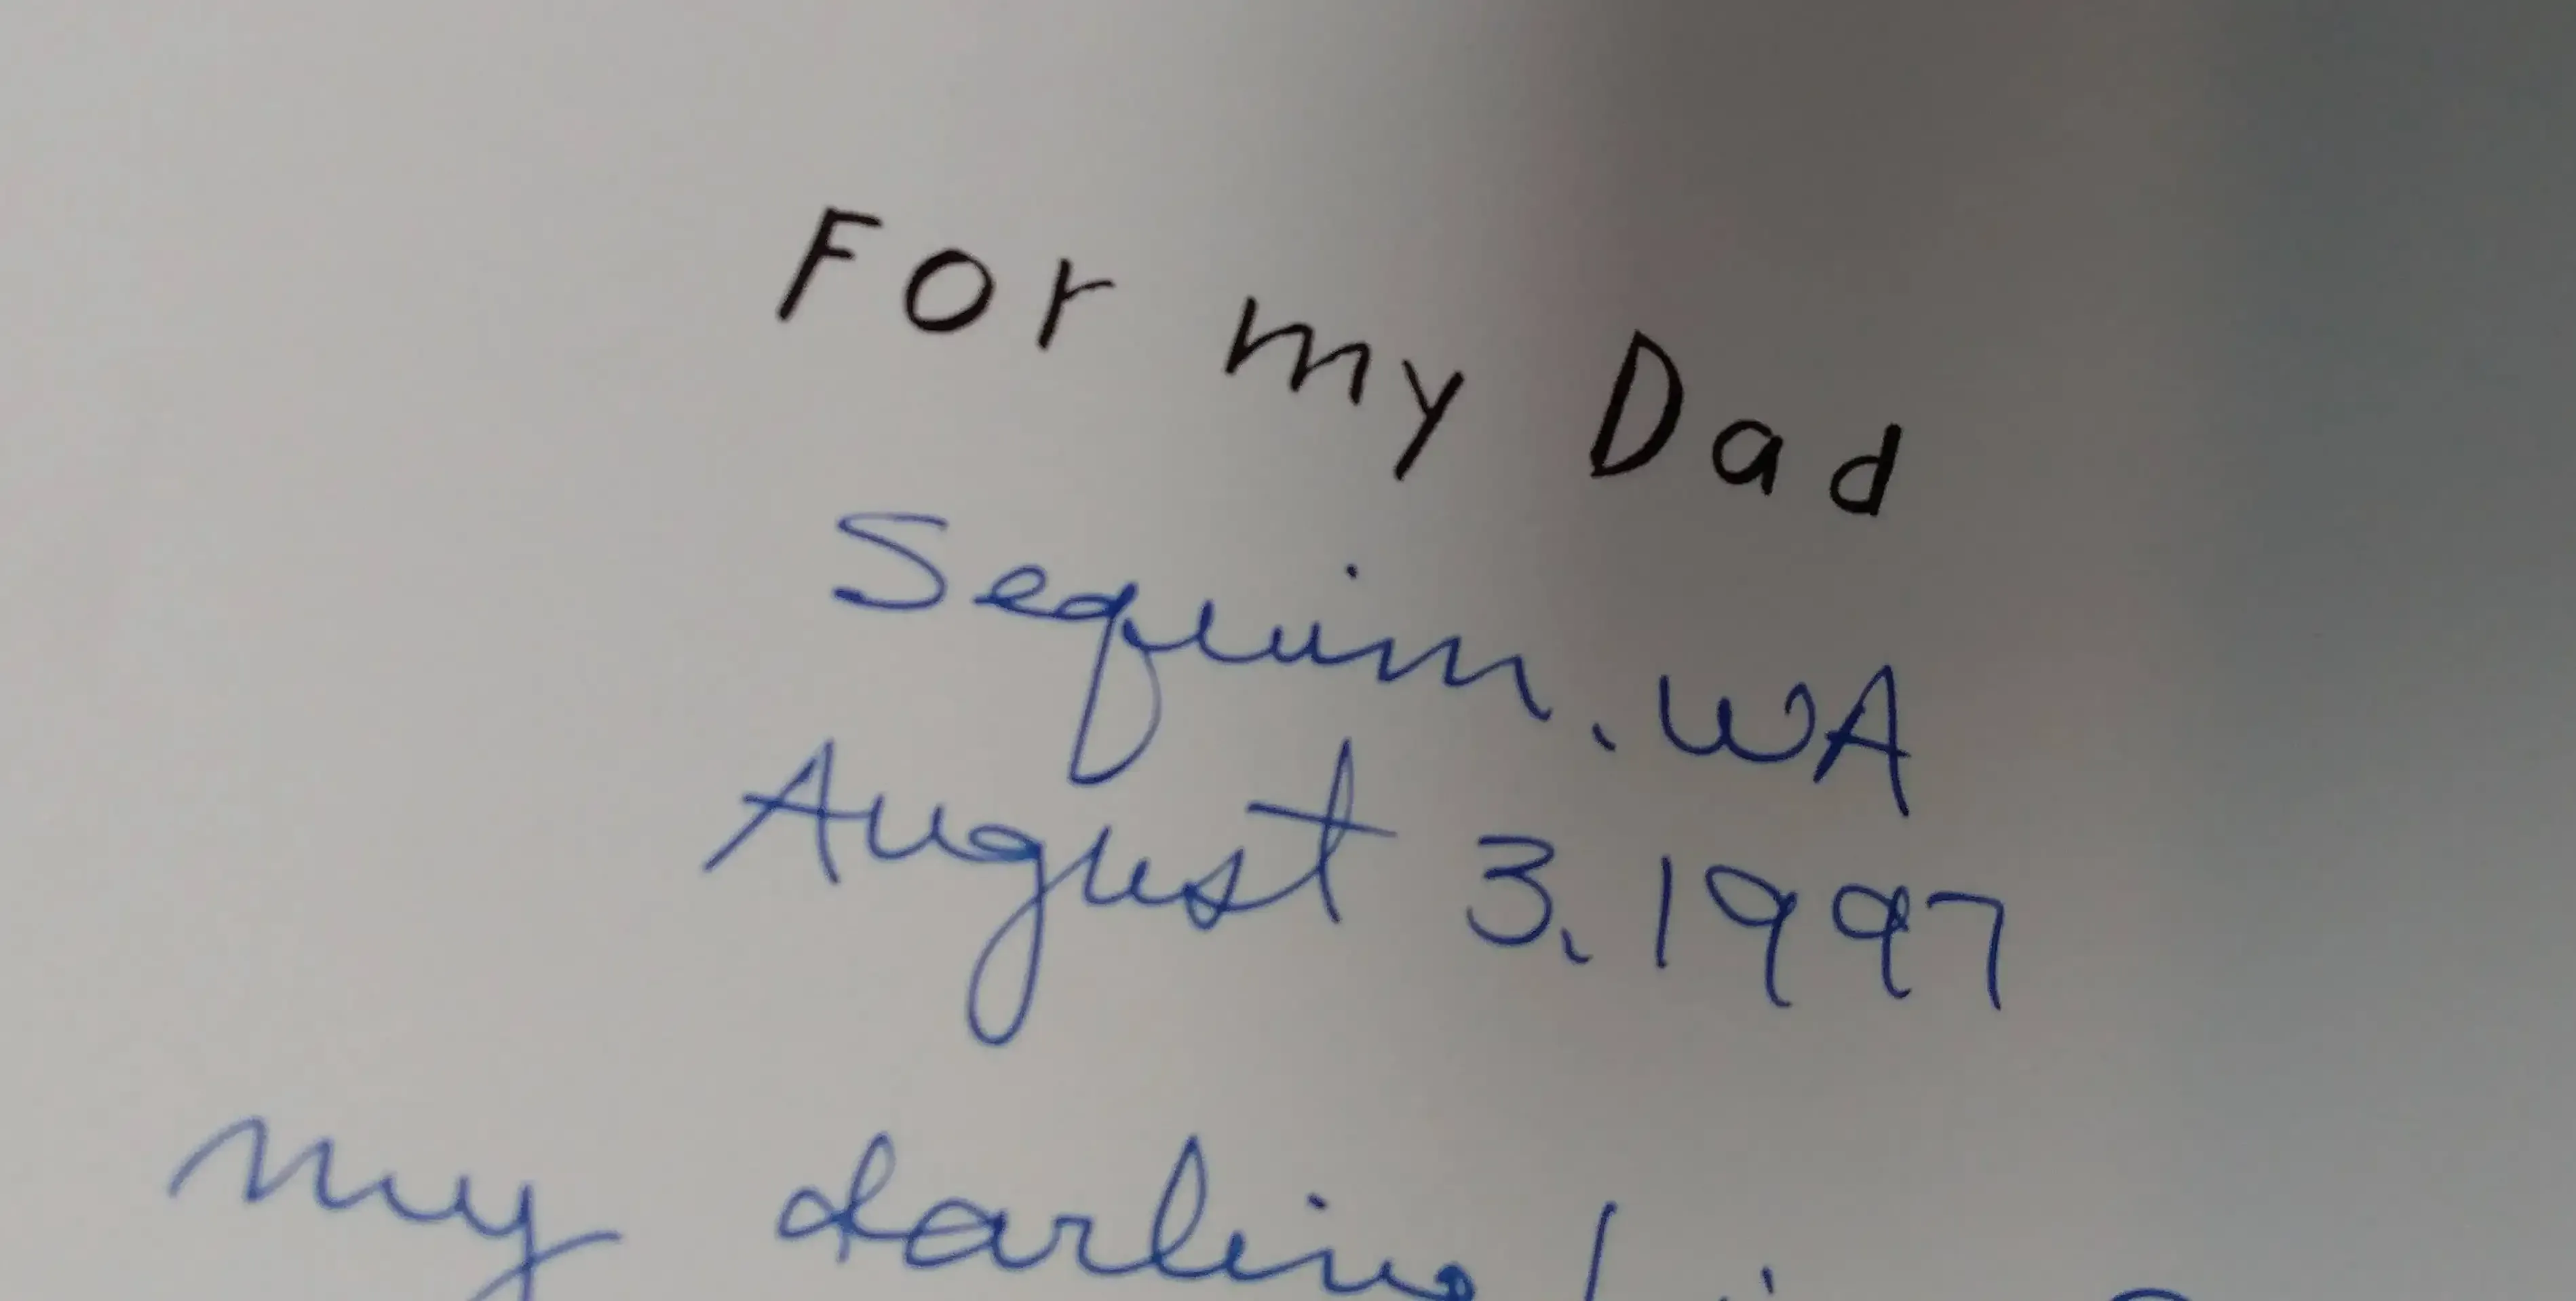 For my Dad
Sequim, WA
August 3, 1997
my darling